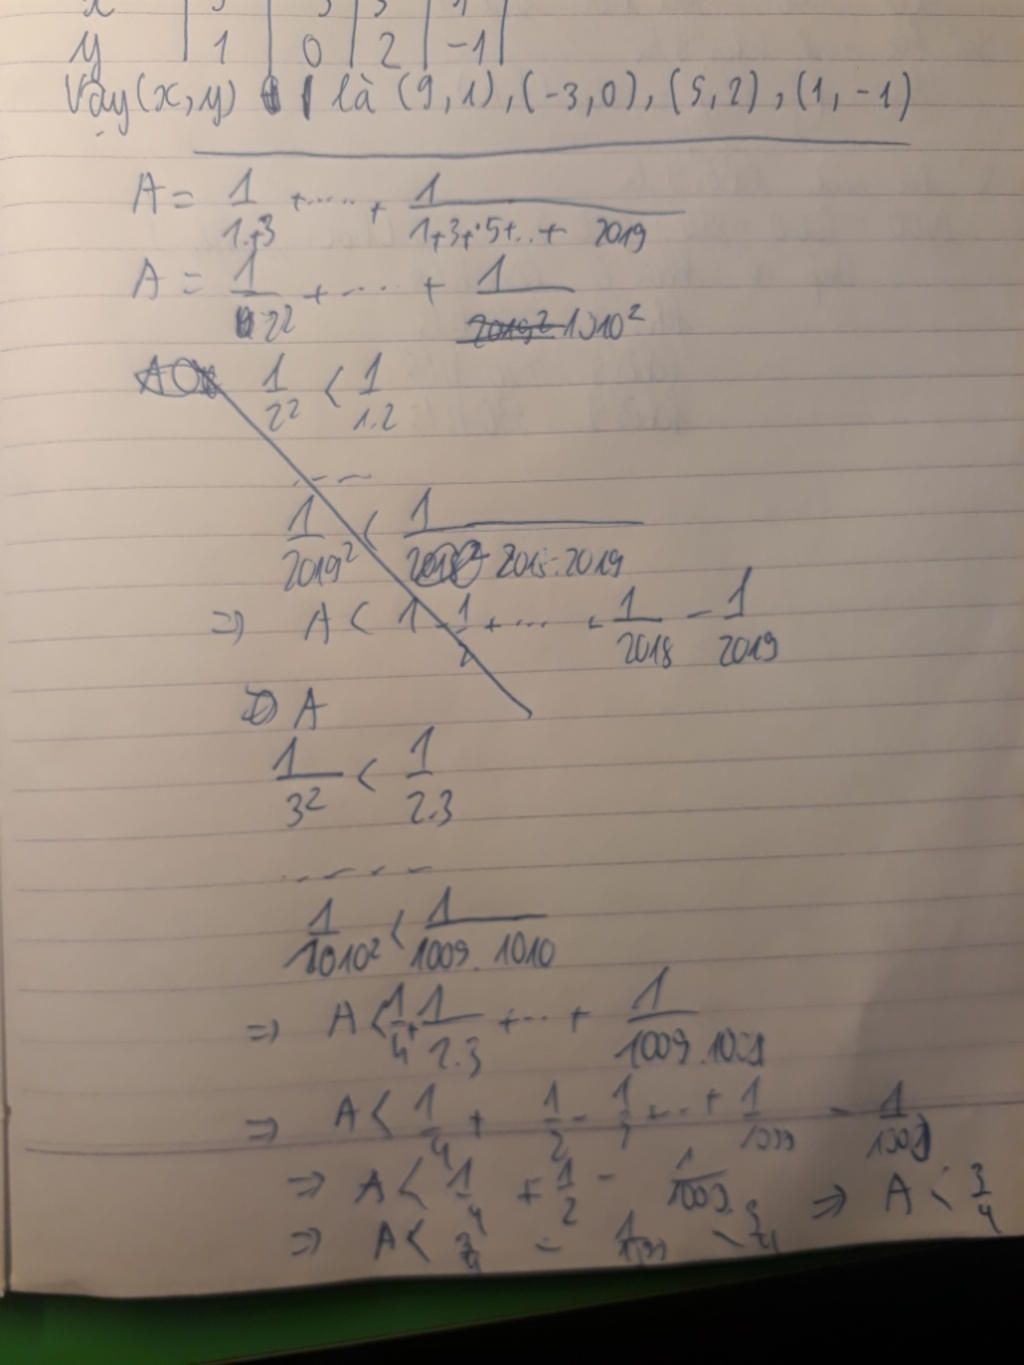 y | 1 | 0 | 2 | -1 |
Vậy (x, y) là (9, 1), (-3, 0), (5, 2), (1, -1)
A = 1/1+3 + ..... + 1/1+3+5+..+ 2019
A = 1/2² + .... + 1/1010²
1/2² < 1/1.2
----
1/2019² < 1/2018.2019
=> A < 1 - 1/2 + ... + 1/2018 - 1/2019
A
1/3² < 1/2.3
.....
1/1010² < 1/1009.1010
=> A < 1/4 + 1/2.3 + ... + 1/1009.
=> A < 1/4 + 1/2 - ... + 1/ - 1/
=> A < 1/4 + 1/2 - 1/ => A < 3/4
=> A < 3/4 - 1/ < 3/4